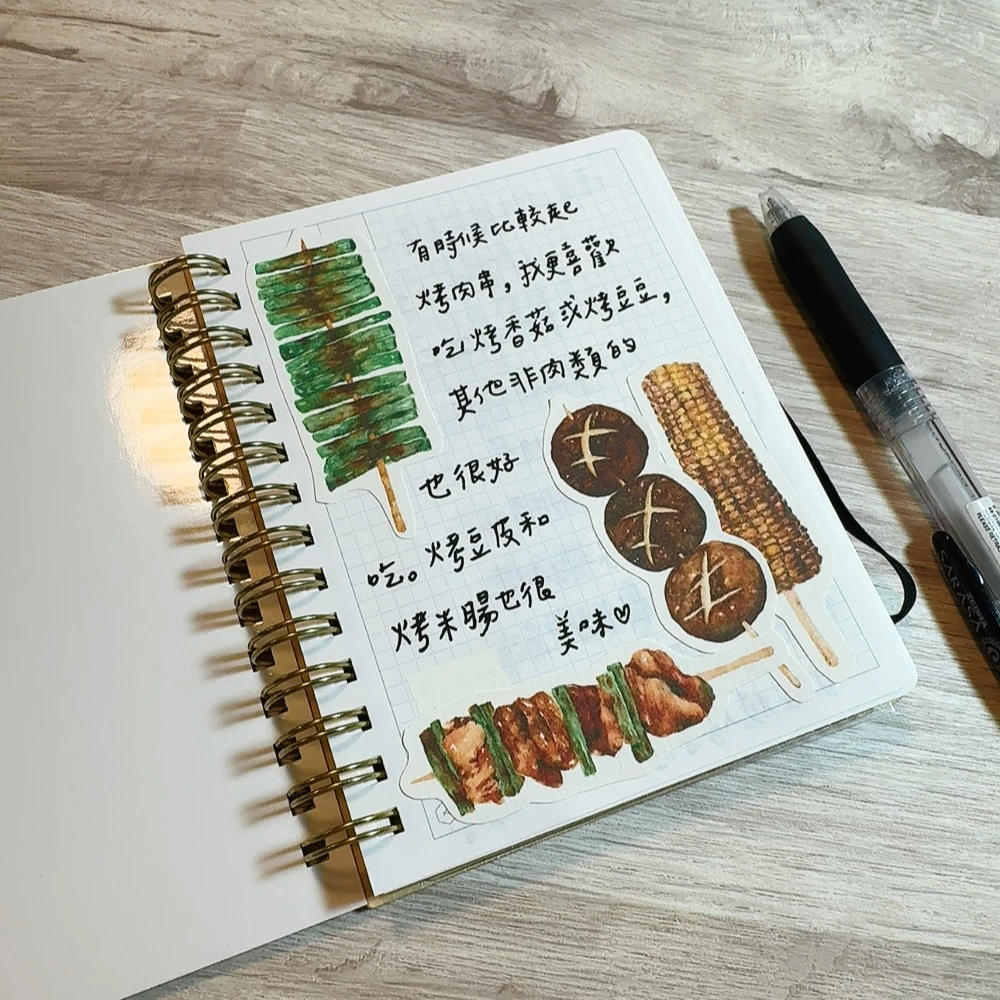 有時候比較起
烤肉串，我更喜歡
吃烤香菇或烤豆豆，
其他非肉類的
也很好
吃。烤豆皮和
烤米腸也很
美味♡
SARASA